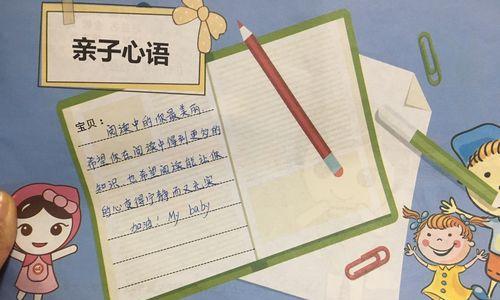 亲子心语
宝贝：阅读中的你最美丽.
希望你在阅读中得到更多的
知识.也希望阅读能让你
的心变得宁静而又充实
加油！My baby